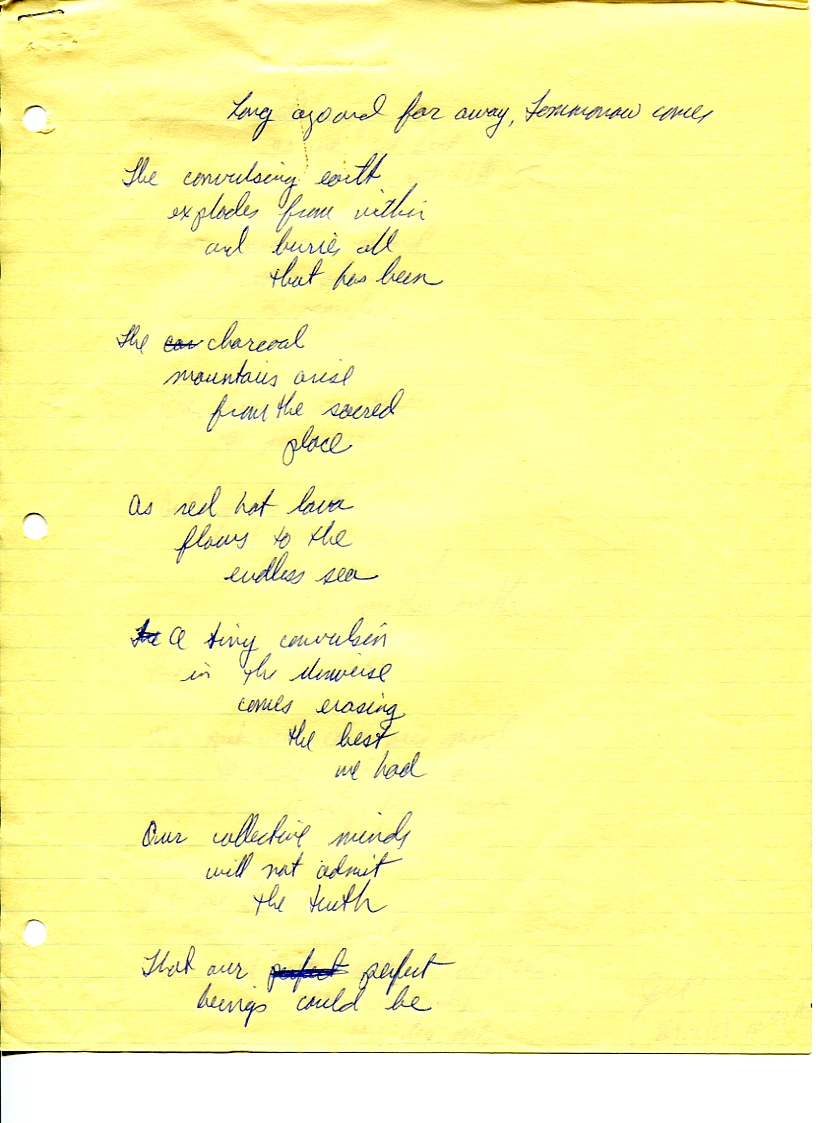 Long ago and far away, tommorow comes
The convulsing earth
explodes from within
and buries all
that has been
The charcoal
mountains arise
from the sacred
place
As red hot lava
flows to the
endless sea
A tiny convulsin
in the Universe
comes erasing
the best
we had
Our collective minds
will not admit
the truth
That our perfect perfect
beings could be